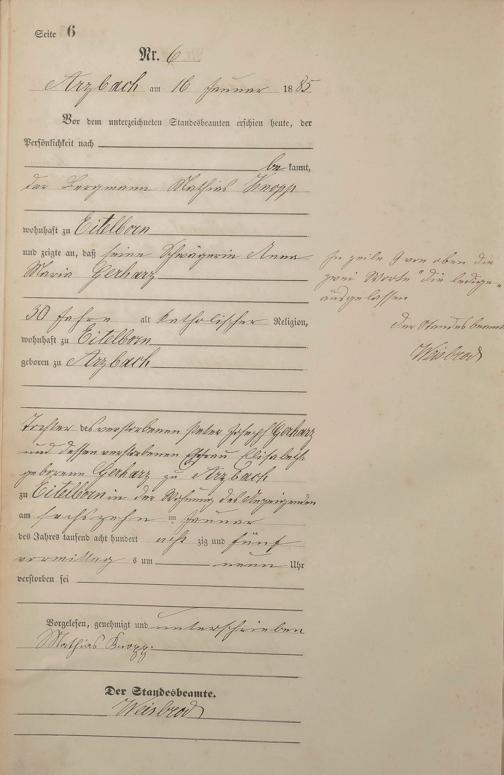 Seite 6
Nr. 6
Arzbach am 16 Januar 1885
Vor dem unterzeichneten Standesbeamten erschien heute, der
Persönlichkeit nach
be kannt,
der Bergmann Mathias Knopp
wohnhaft zu Eitelborn
und zeigte an, daß seine Schwägerin Anna
Maria Gerharz
50 Jahre alt katholischer Religion,
wohnhaft zu Eitelborn
geboren zu Arzbach
Tochter des verstorbenen Peter Joseph Gerharz
und dessen verstorbenen Ehefrau Elisabeth
geborene Gerharz zu Arzbach
zu Eitelborn in der Wohnung des Anzeigenden
am sechszehn ten Januar
des Jahres tausend acht hundert acht zig und fünf
vormittag s um neun Uhr
verstorben sei
Vorgelesen, genehmigt und unterschrieben
Mathias Knopp
Der Standesbeamte.
Weisbrod
In zeile 9 von oben die
zwei Worte "die ledige"
ausgelassen
Der Standesbeamte
Weisbrod